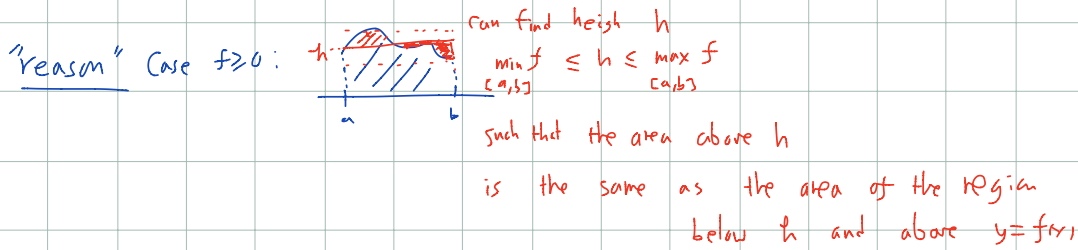 "reason" Case f≥0:
h
a b
can find heigh h
min f ≤ h ≤ max f
[a,b] [a,b]
such that the area above h
is the same as the area of the region
below h and above y=f(x)